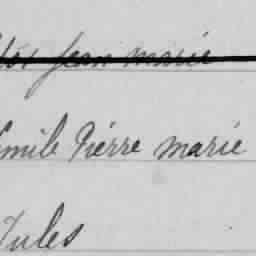 Jean Marie
Emile Pierre Marie
Jules